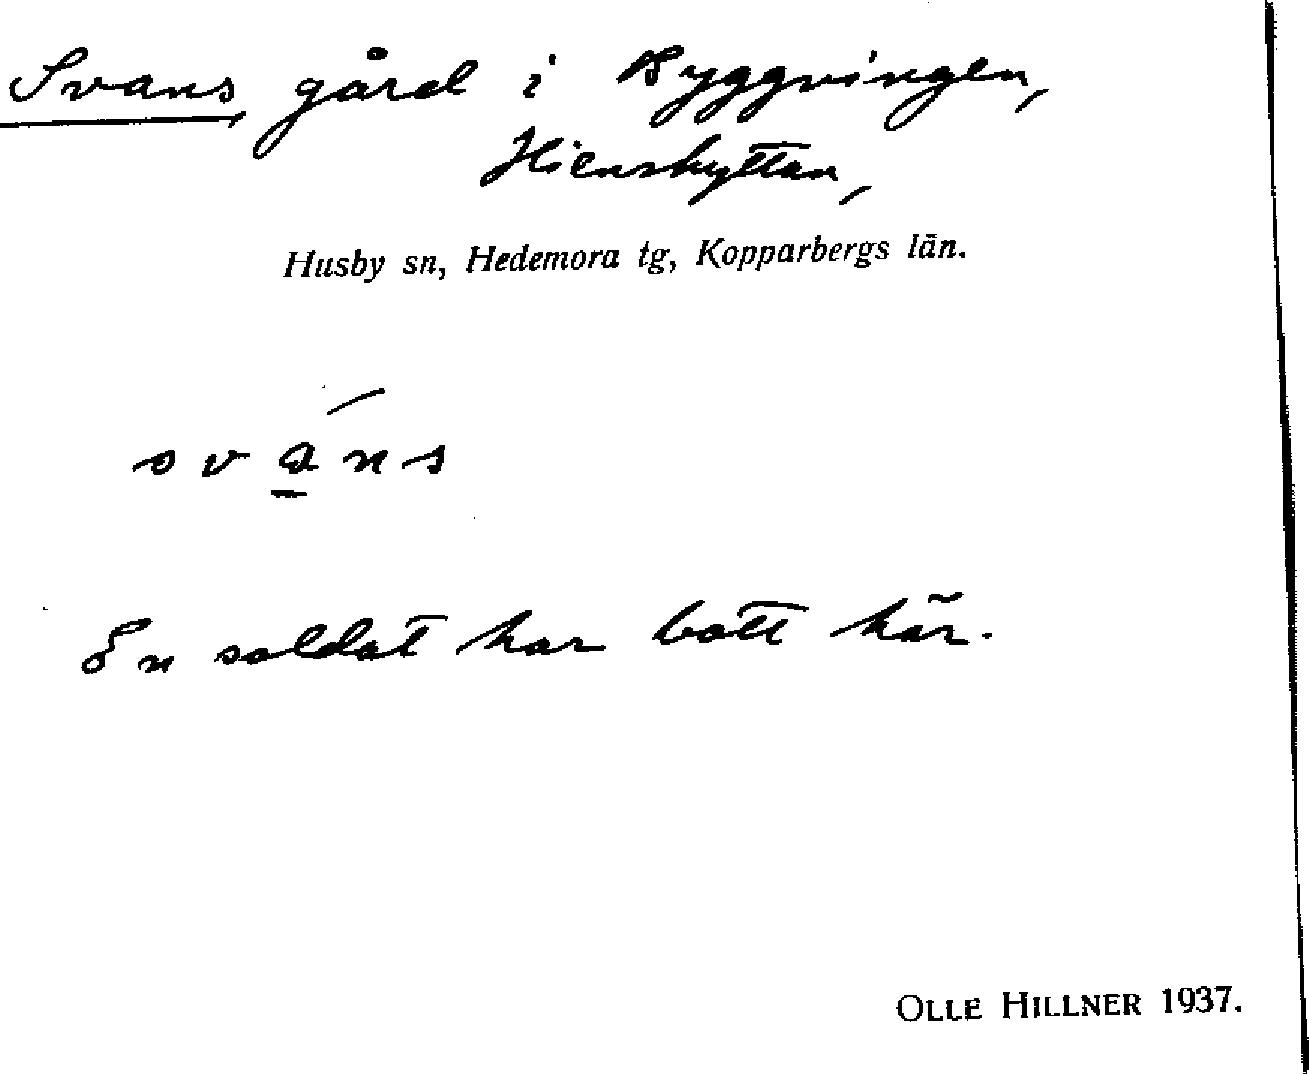 Svans, gård i Byggningen,
Hienshyttan,
Husby sn, Hedemora tg, Kopparbergs län.
svans
En soldat har bott här.
OLLE HILLNER 1937.